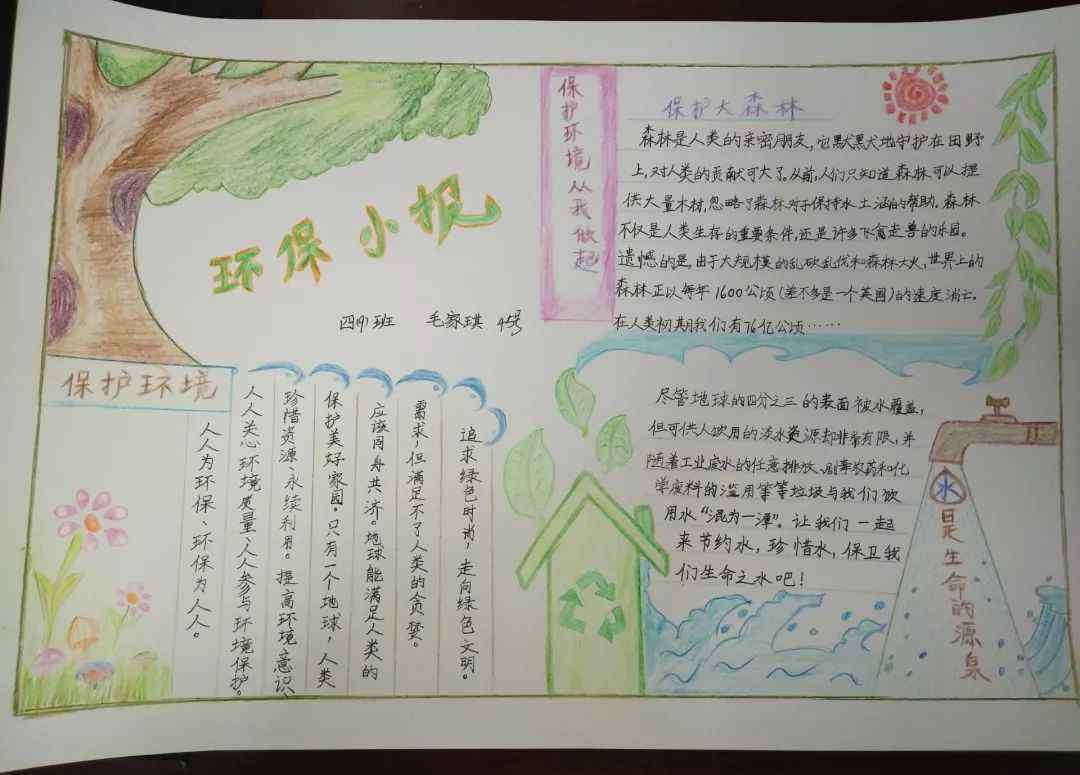 环保小报
四 班 毛家琪 45号
保护环境从我做起
保护大森林
森林是人类的亲密朋友，它默默地守护在田野
上，对人类的贡献可大了。从前，人们只知道森林可以提
供大量木材，忽略了森林对于保持水土涵的帮助。森林
不仅是人类生存的重要条件，还是许多飞禽走兽的乐园。
遗憾的是，由于大规模的乱砍乱伐和森林大火，世界上的
森林正以每年1600公顷(差不多是一个英国)的速度消亡。
在人类初期我们有76亿公顷……
保护环境
人人为环保、环保为人人。
人人关心环境质量、人人参与环境保护。
珍惜资源、永续利用。提高环境意识、
保护美好家园。只有一个地球，人类
应该同舟共济。地球能满足人类的
需求，但满足不了人类的贪婪。
追求绿色时尚，走向绿色文明。
尽管地球的四分之三的表面被水覆盖，
但可供人饮用的淡水资源却非常有限，并
随着工业废水的任意排放、剧毒农药和化
学废料的滥用等等垃圾与我们饮
用水“混为一潭”。让我们一起
来节约水，珍惜水，保卫我
们生命之水吧！
水是生命的源泉